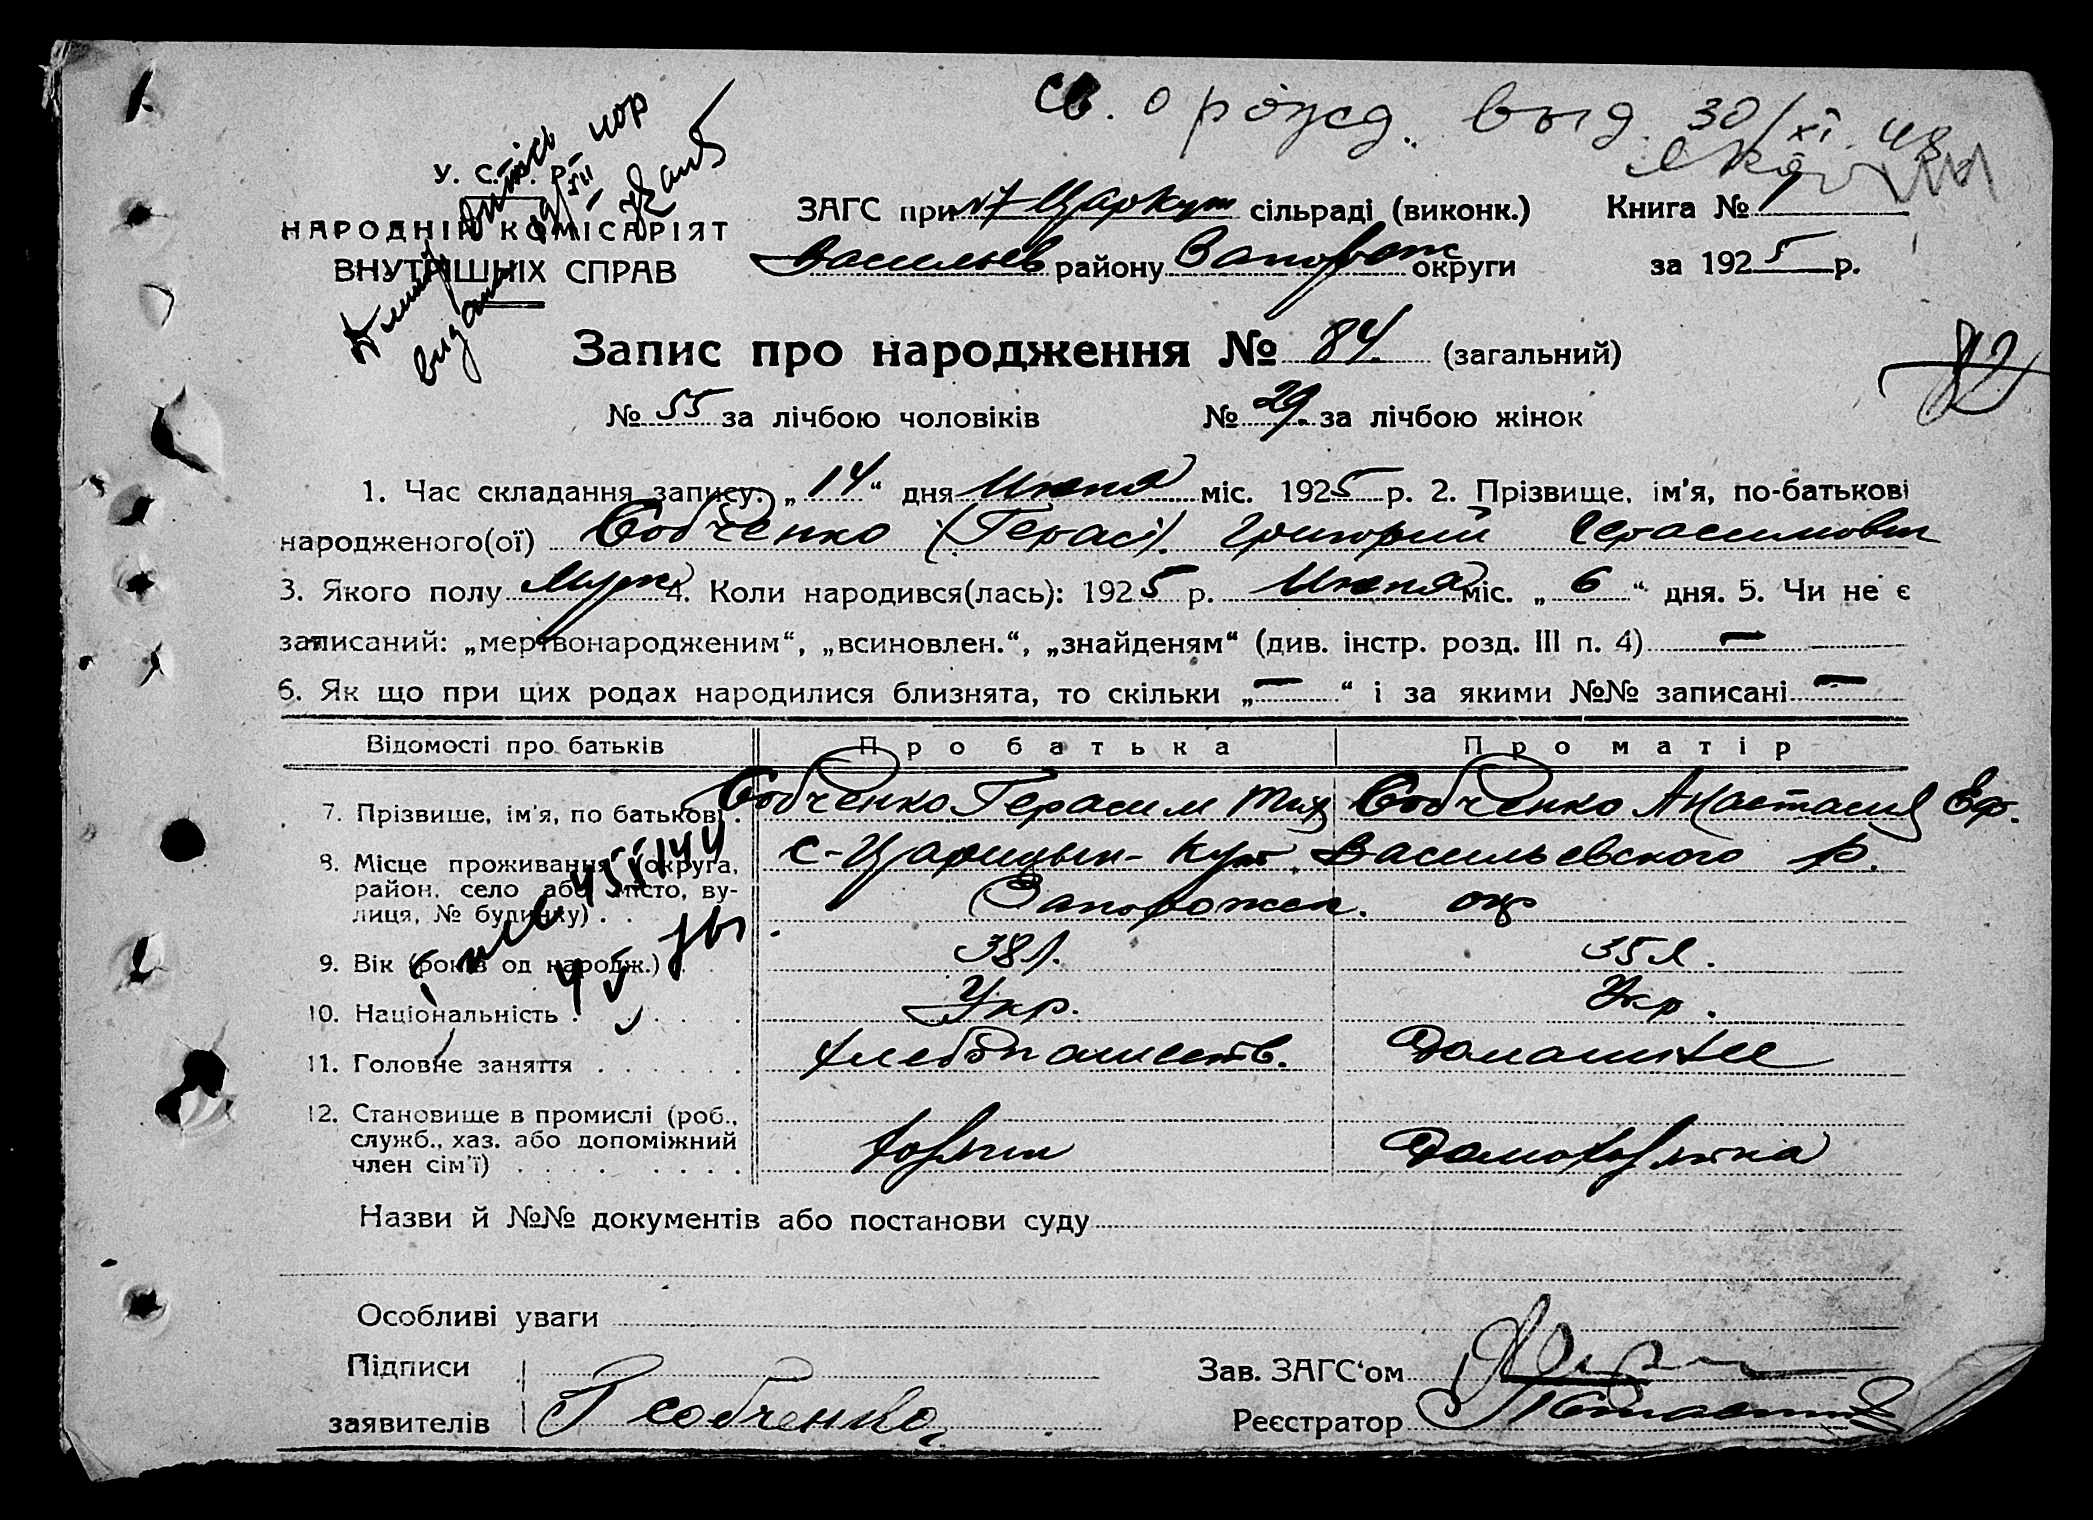 Св. о рожд. выд. 30/XI 48
У. С. Р. Р.
НАРОДНІЙ КОМІСАРІЯТ
ВНУТРІШНІХ СПРАВ
ЗАГС при Царкут сільраді (виконк.) Книга № 1
Васильев району Запорож округи за 1925 р.
Запис про народження № 84. (загальний)
82
№ 55 за лічбою чоловіків № 29. за лічбою жінок
1. Час складання запису: „14“ дня Июня міс. 1925 р. 2. Прізвище, ім'я, по-батькові
народженого(ої) Собченко (Герасі). Григорий Герасимович
3. Якого полу Муж 4. Коли народився(лась): 1925 р. Июня міс. „6“ дня. 5. Чи не є
записаний: „мертвонародженим“, „всиновлен.“, „знайденям“ (див. інстр. розд. III п. 4) —
6. Як що при цих родах народилися близнята, то скільки „—“ і за якими №№ записані —
Відомості про батьків Про батька Про матір
7. Прізвище, ім'я, по батькові. Собченко Герасим Тих Собченко Анастасия Еф.
8. Місце проживання (округа, с-Царицын-Кут Васильевского р.
район, село або місто, ву-
лиця, № будинку) . . Запорожск. окр
9. Вік (років од народж.) . 38 л. 35 л.
10. Національність . . . . . Укр. Укр.
11. Головне заняття . . . . . . хлебопашеств. Домашнее
12. Становище в промислі (роб.,
служб., хаз. або допоміжний хозяин Домохозяйка
член сім'ї) . . . . . . . .
Назви й №№ документів або постанови суду
Особливі уваги
Підписи Зав. ЗАГС'ом
заявителів Г Собченко Реєстратор